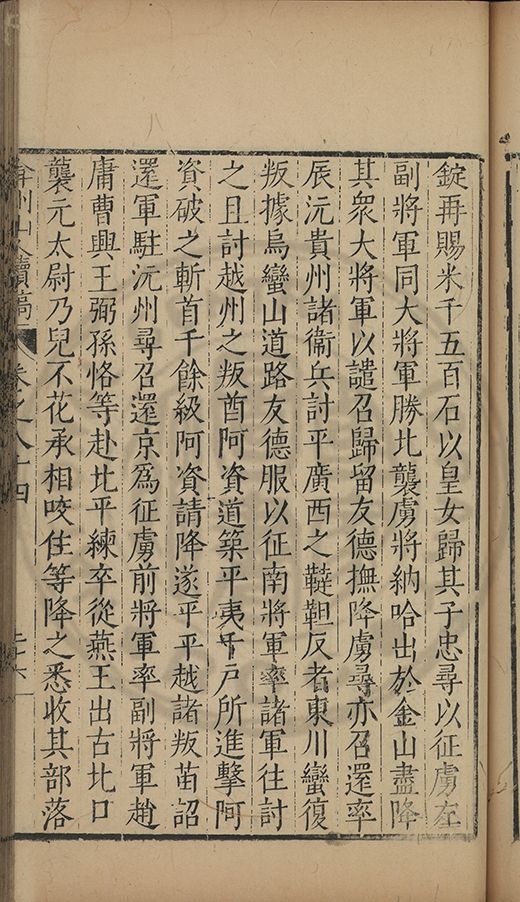 錠再賜米千五百石以皇女歸其子忠尋以征虜左
副將軍同大將軍勝北襲虜將納哈出於金山盡降
其衆大將軍以譴召歸留友德撫降虜尋亦召還率
辰沅貴州諸衞兵討平廣西之韃靼反者東川蠻復
叛據烏蠻山道路友德服以征南將軍率諸軍往討
之且討越州之叛酋阿資道築平夷千戶所進擊阿
資破之斬首千餘級阿資請降遂平平越諸叛苗詔
還軍駐沅州尋召還京爲征虜前將軍率副將軍趙
庸曹興王弼孫恪等赴北平練卒從燕王出古北口
襲元太尉乃兒不花丞相咬住等降之悉收其部落
弇州山人續稿 卷之八十四